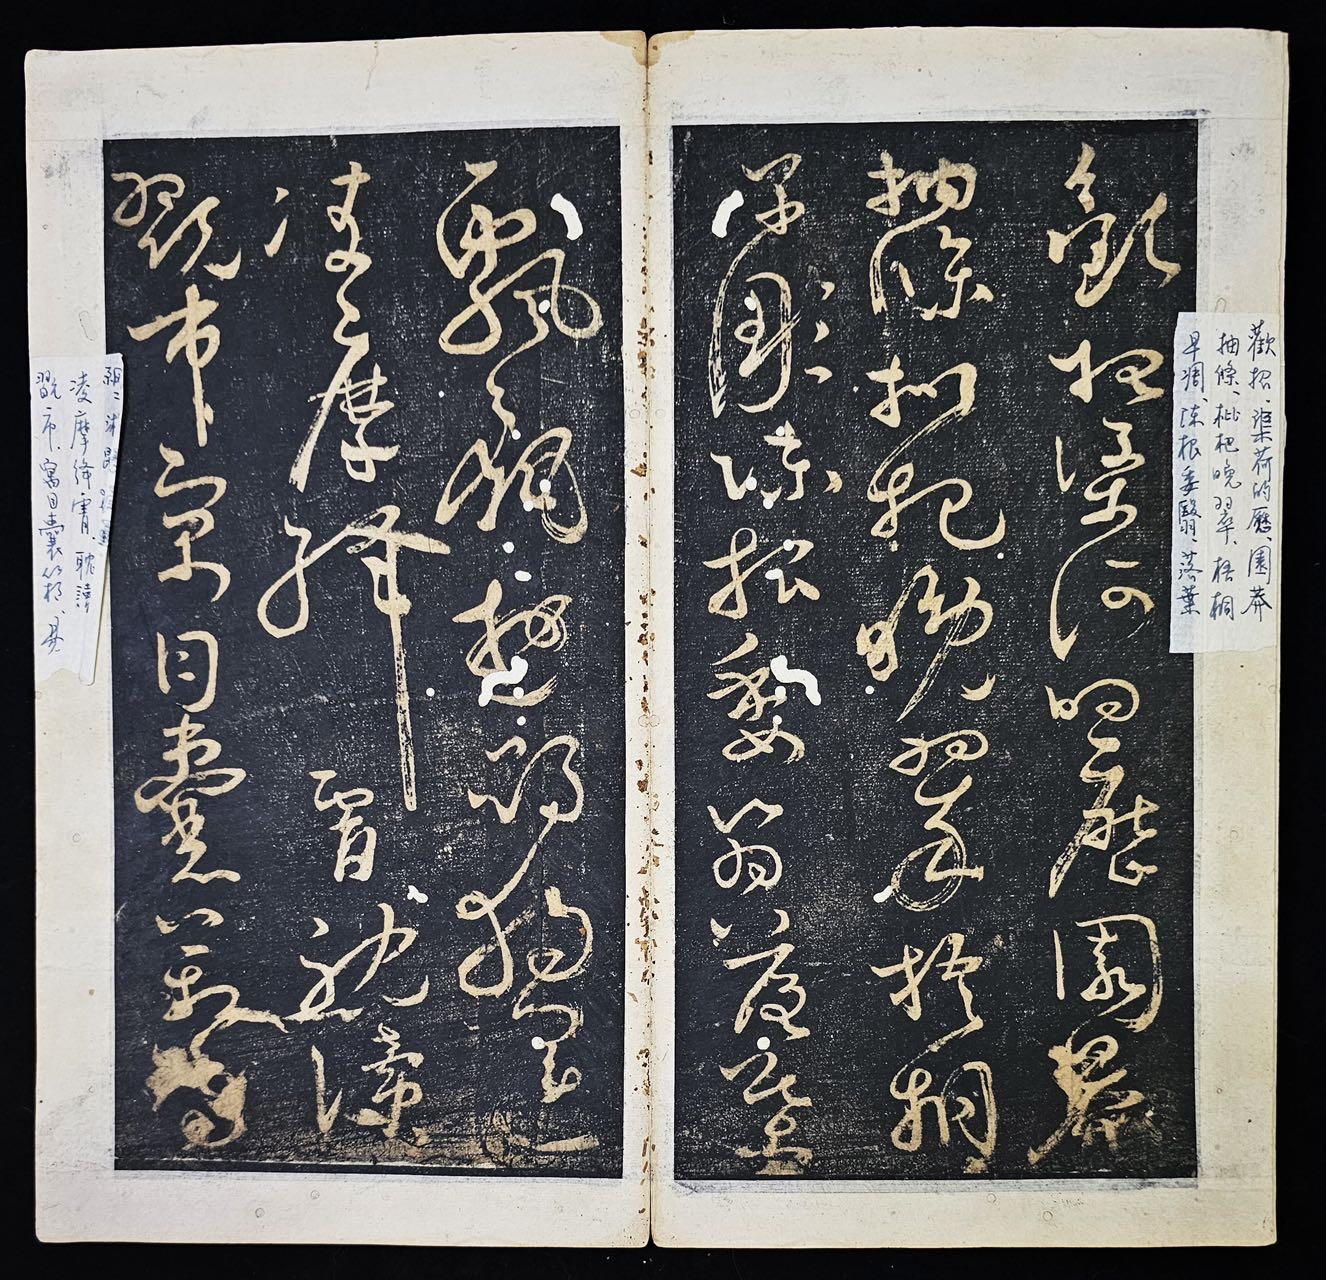 歡招渠荷的歷園莽
抽條枇杷晚翠梧桐
早彫陳根委翳落葉
飄颻遊鵾獨運
凌摩絳霄耽讀
翫市寓目囊箱易
歡招、渠荷的歷、園莽
抽條、枇杷晚翠、梧桐
早凋、陳根委翳、落葉
凌摩絳霄、耽讀
翫市、寓目囊箱、易